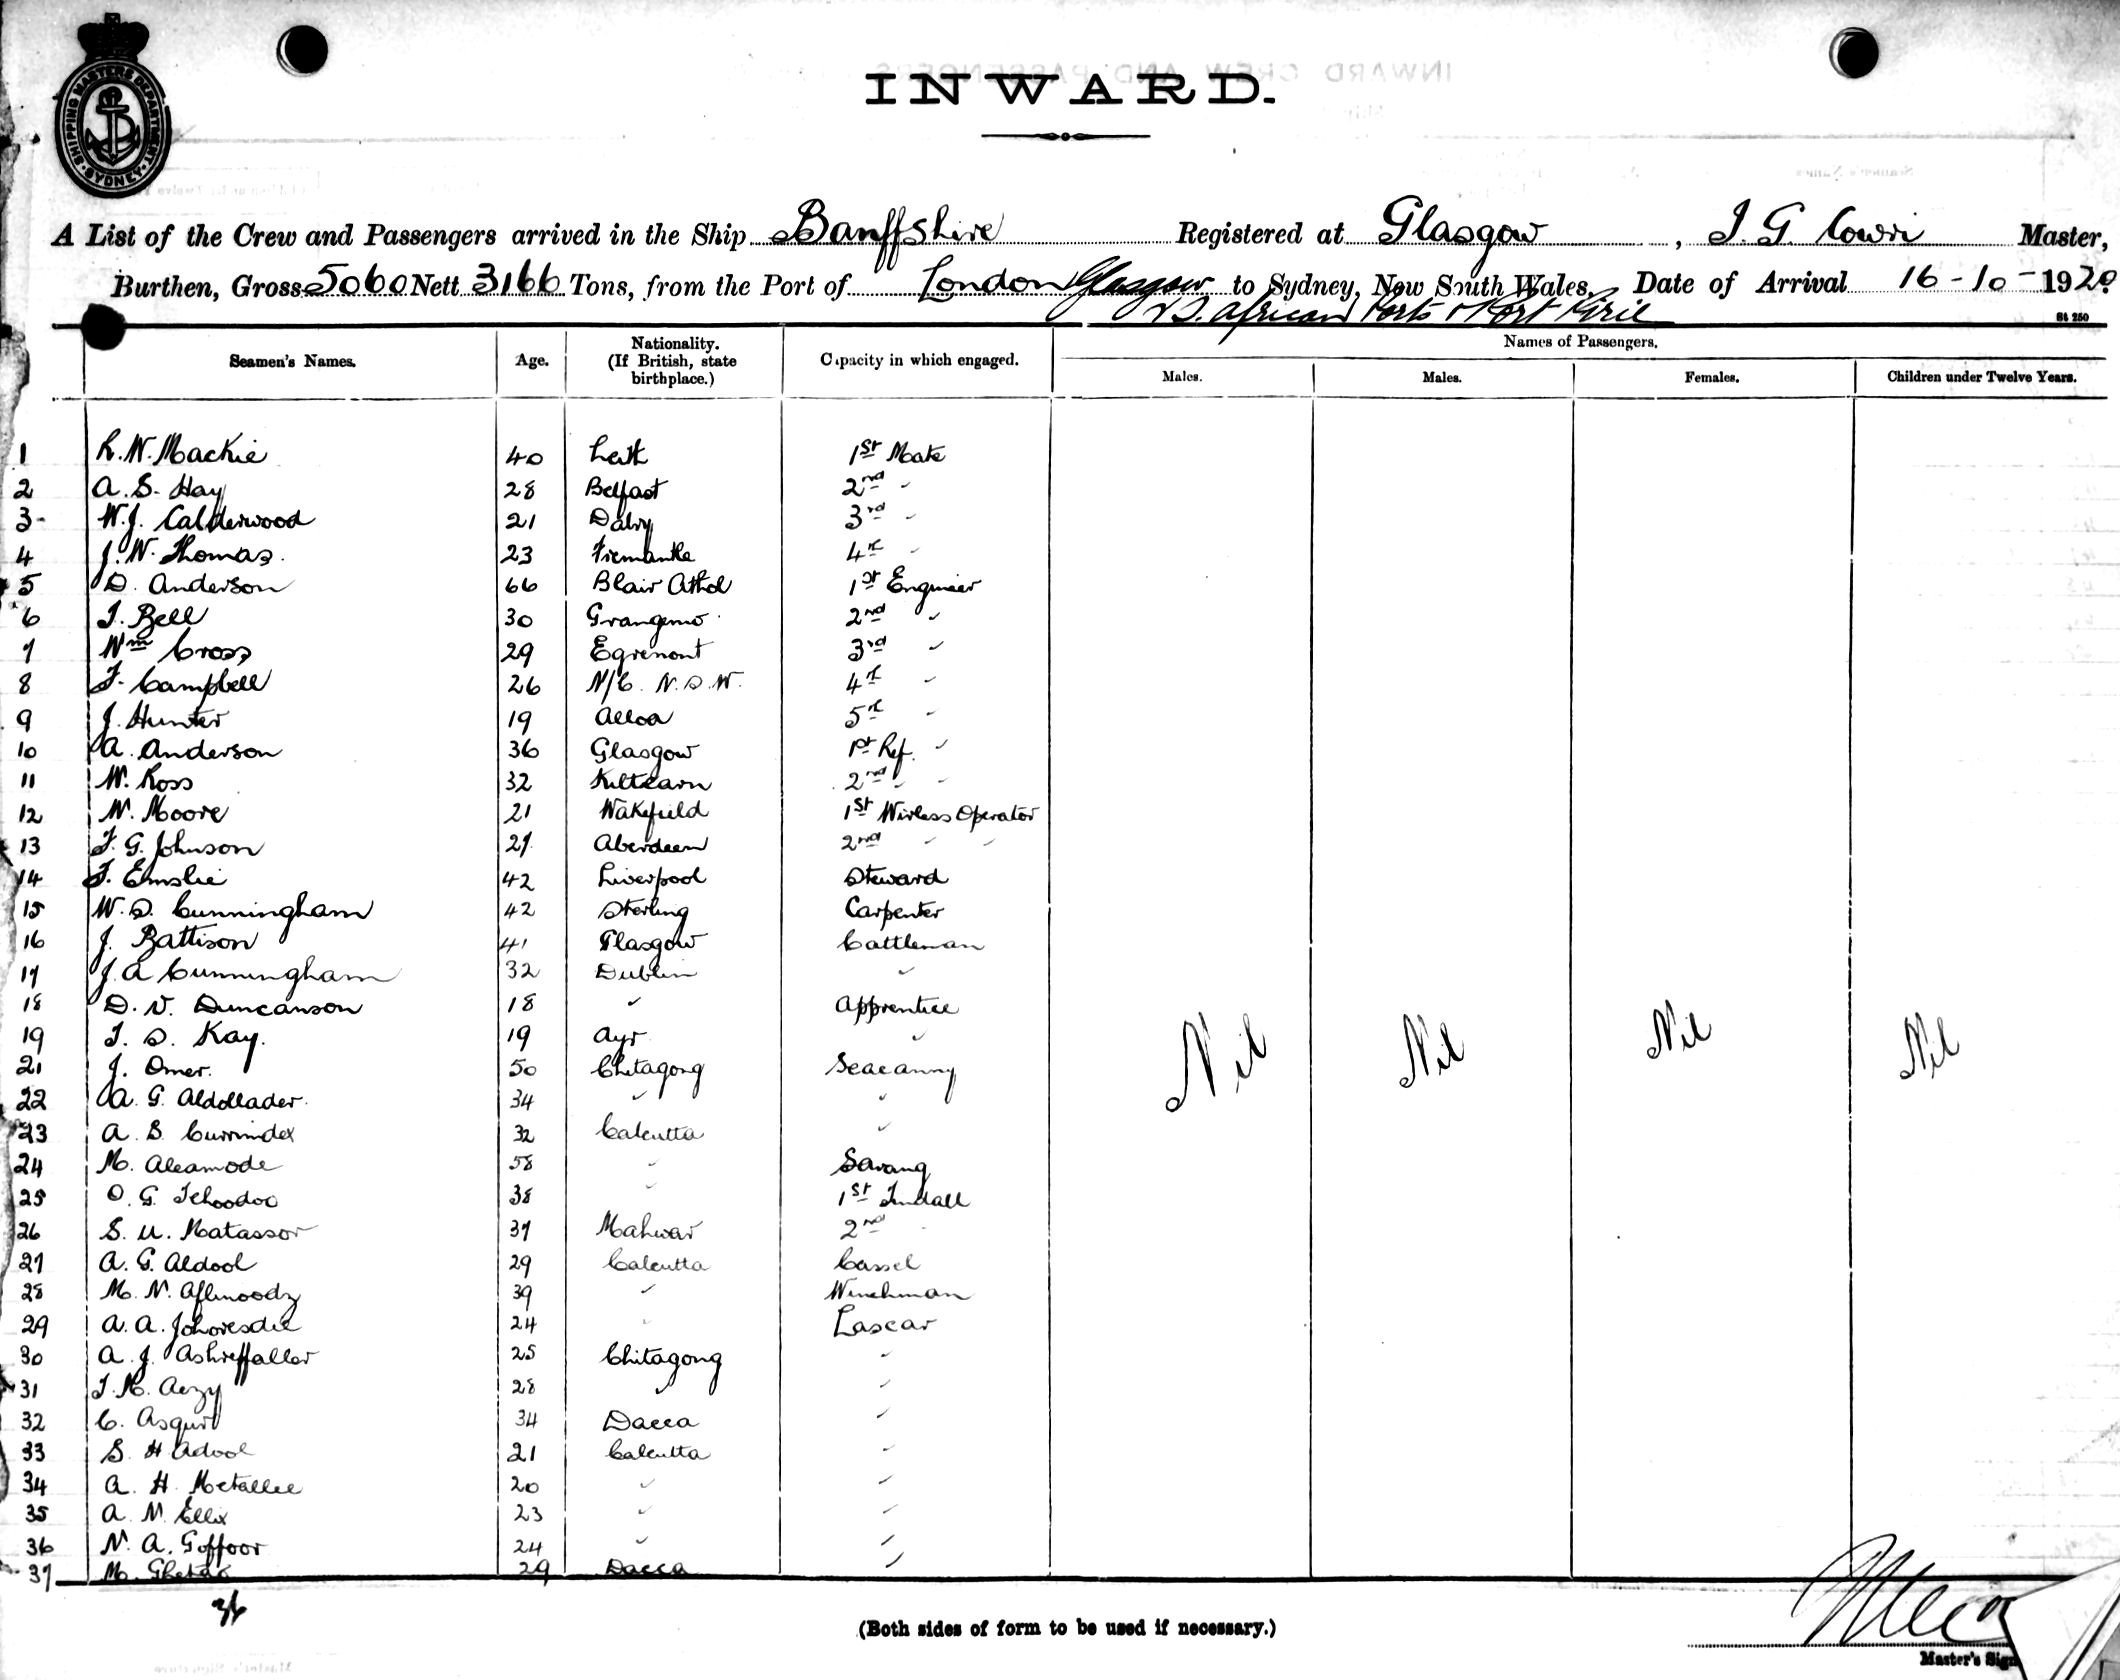 SHIPPING MASTERS DEPARTMENT SYDNEY
INWARD.
A List of the Crew and Passengers arrived in the Ship Banffshire Registered at Glasgow, J. G. Cowri Master,
Burthen, Gross 5060 Nett 3166 Tons, from the Port of London Glasgow to Sydney, New South Wales, Date of Arrival 16-10-1920
S. African Ports & Port Pirie
St 250
Seamen's Names. Age. Nationality. (If British, state birthplace.) Capacity in which engaged. Names of Passengers.
Males. Males. Females. Children under Twelve Years.
1 R. W. Mackie 40 Leith 1st Mate
2 A. S. Hay 28 Belfast 2nd "
3 W. J. Calderwood 21 Dalry 3rd "
4 J. W. Thomas. 23 Fremantle 4th "
5 D. Anderson 66 Blair Athol 1st Engineer
6 J. Bell 30 Grangemo 2nd "
7 Wm Cross 29 Egremont 3rd "
8 F. Campbell 26 N/C. N.S.W. 4th "
9 J. Hunter 19 Alloa 5th "
10 A. Anderson 36 Glasgow 1st Ref. "
11 W. Ross 32 Kiltearn 2nd " "
12 W. Moore 21 Wakefield 1st Wirless Operator
13 F. G. Johnson 27 Aberdeen 2nd " "
14 F. Emslie 42 Liverpool Steward
15 W. S. Cunningham 42 Sterling Carpenter
16 J. Battison 41 Glasgow Cattleman
17 J. A Cunningham 32 Dublin "
18 D. N. Duncanson 18 " Apprentice
19 J. S. Kay. 19 Ayr "
21 J. Omer. 50 Chitagong Seacanny
22 A. G. Aldollader 34 " "
23 A. S. Currindex 32 Calcutta "
24 M. Aleamode 58 " Sarang
25 O. G. Tehoodoo 38 " 1st Tindall
26 S. U. Matassor 37 Mahwar 2nd "
27 A. G. Aldool 29 Calcutta Cassel
28 M. N. Aflmoody 39 " Winchman
29 A. A. Johoresdee 24 " Lascar
30 A. J. Ashreffaller 25 Chitagong "
31 J. M. Aezy 28 " "
32 C. Asqurl 34 Dacca "
33 S. H. Adool 21 Calcutta "
34 A. H. Metallee 20 " "
35 A. N. Ellix 23 " "
36 N. A. Goffoor 24 " "
37 M. 29 Dacca
Nil Nil Nil Nil
36
(Both sides of form to be used if necessary.)
Master's Sign